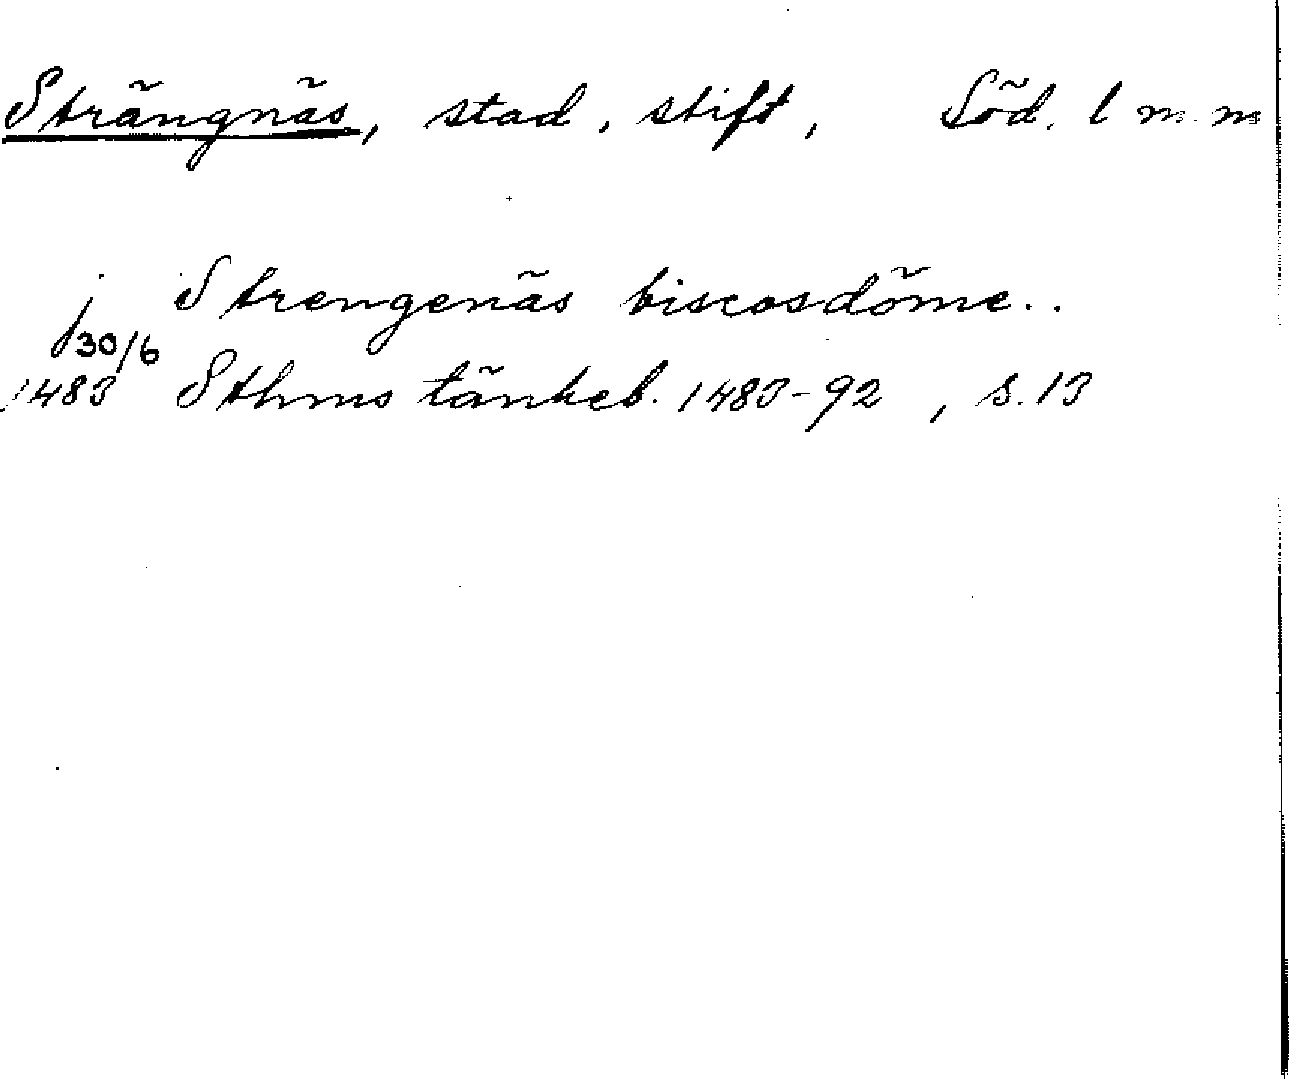 Strängnäs, stad, stift, Söd. l m. m
j Strengenäs biscosdöme..
30/6
1483 Sthms tänkeb. 1483-92, s. 13